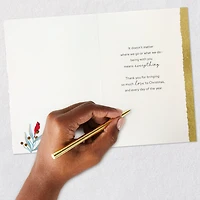 It doesn't matter
where we go or what we do -
being with you
means everything.
Thank you for bringing
so much love to Christmas,
and every day of the year.